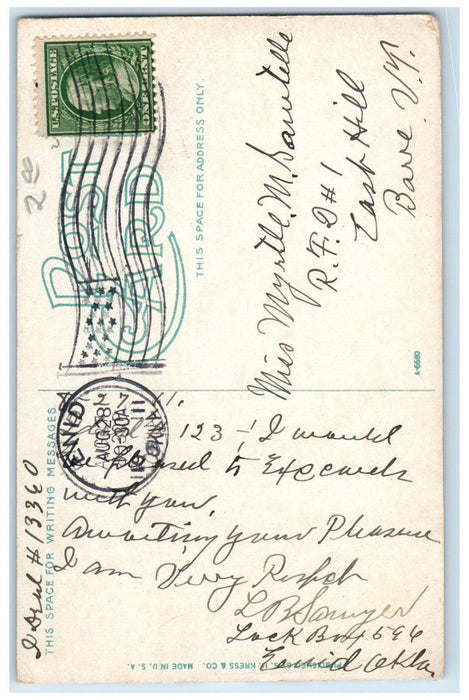 U.S. POSTAGE
ONE CENT
2 00
POST CARD
THIS SPACE FOR ADDRESS ONLY.
Miss Myrtle. M. Sawtelle
R. F. D #1
East Hill
Barre. V.T.
A-6680
ENID
AUG 28
OKLA.
THIS SPACE FOR WRITING MESSAGES
I Deal # 13360
123 - I would
be Pleased to Exccards
with you,
Awaiting your Pleasure
I am Very Respch
L B Sawyer
Lock Box 596
Enid Okla.
S. H. KRESS & CO. MADE IN U.S.A.